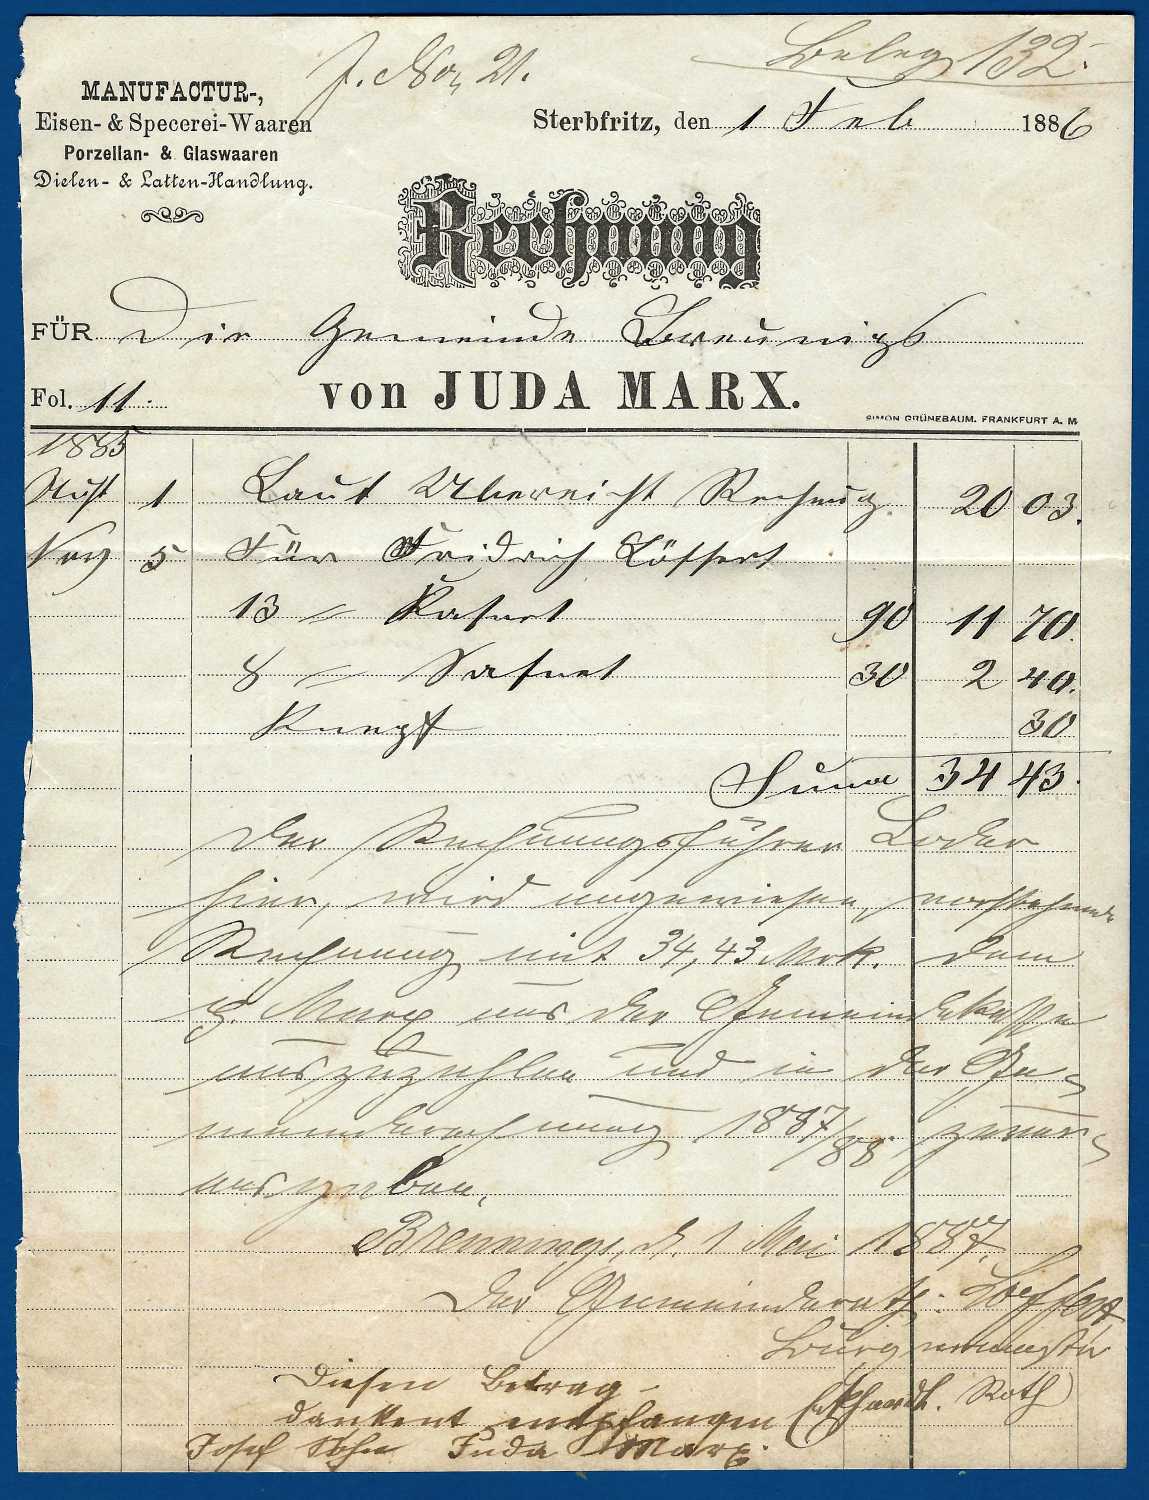 J. No. 21.
Beleg 132.
MANUFACTUR-,
Eisen- & Specerei-Waaren
Porzellan- & Glaswaaren
Dielen- & Latten-Handlung.
Sterbfritz, den 1 Feb 1886
Rechnung
FÜR Die Gemeinde Breunigs
Fol. 11. von JUDA MARX.
SIMON GRÜNEBAUM. FRANKFURT A. M
1885
1 Laut Rechnung 20 03.
Nov 5 Für Fridrich Löffert
13 90 11 70.
8 30 2 40.
Knepf 30
Suma 34 43.
Der Rechnungsführer Loder
hier, wird angewiesen, vorstehende
Rechnung mit 34,43 Mrk. dem
J. Marx aus der Gemeindekasse
auszuzahlen und in der Ge-
meinderechnung 1887/88 zu ver-
ausgaben.
Breunings, d. 1 Mai 1887.
Der Gemeinderath: Löffert
Bürgermeister
Diesen Betrag
dankent empfangen (Ekhardt. Roth)
Josef Sohn Juda Marx.